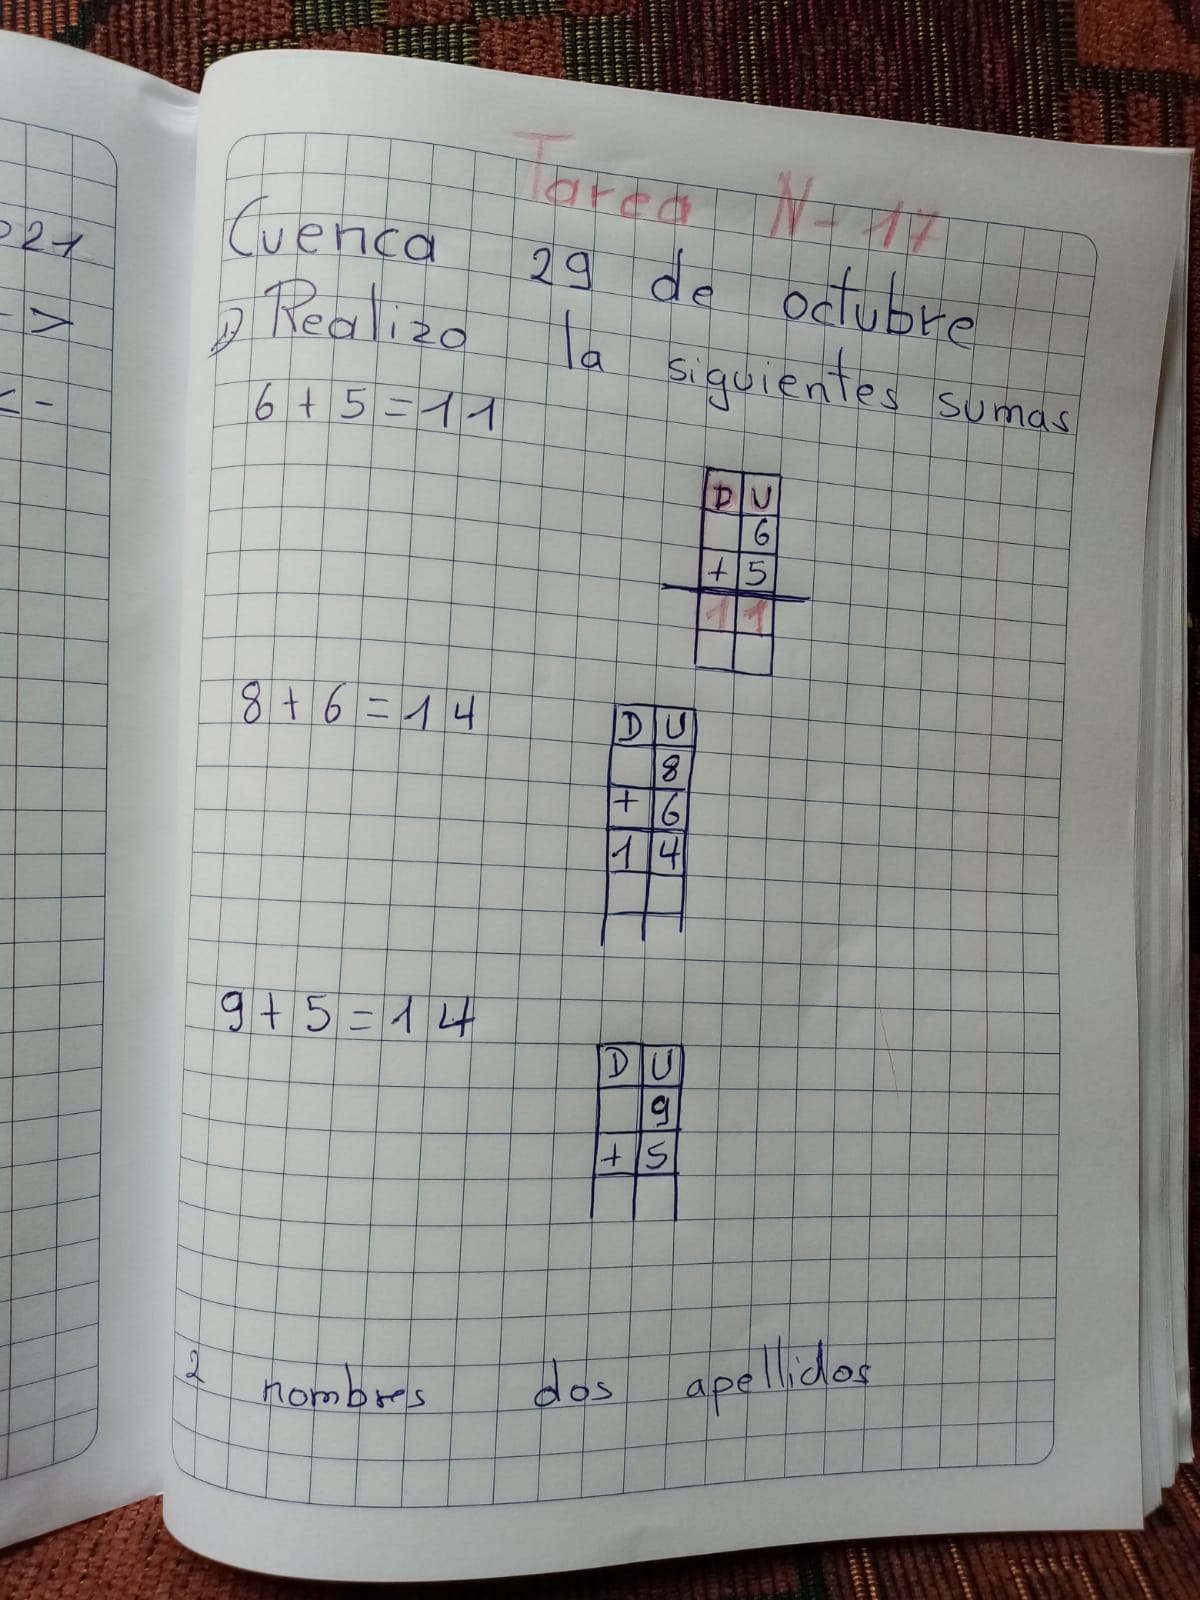 021
->
<-
Tarea N-17
Cuenca 29 de octubre
1) Realizo la siguientes sumas
6 + 5 = 11
D U
6
+ 5
1 1
8 + 6 = 14
D U
8
+ 6
1 4
9 + 5 = 14
D U
9
+ 5
2 nombres dos apellidos